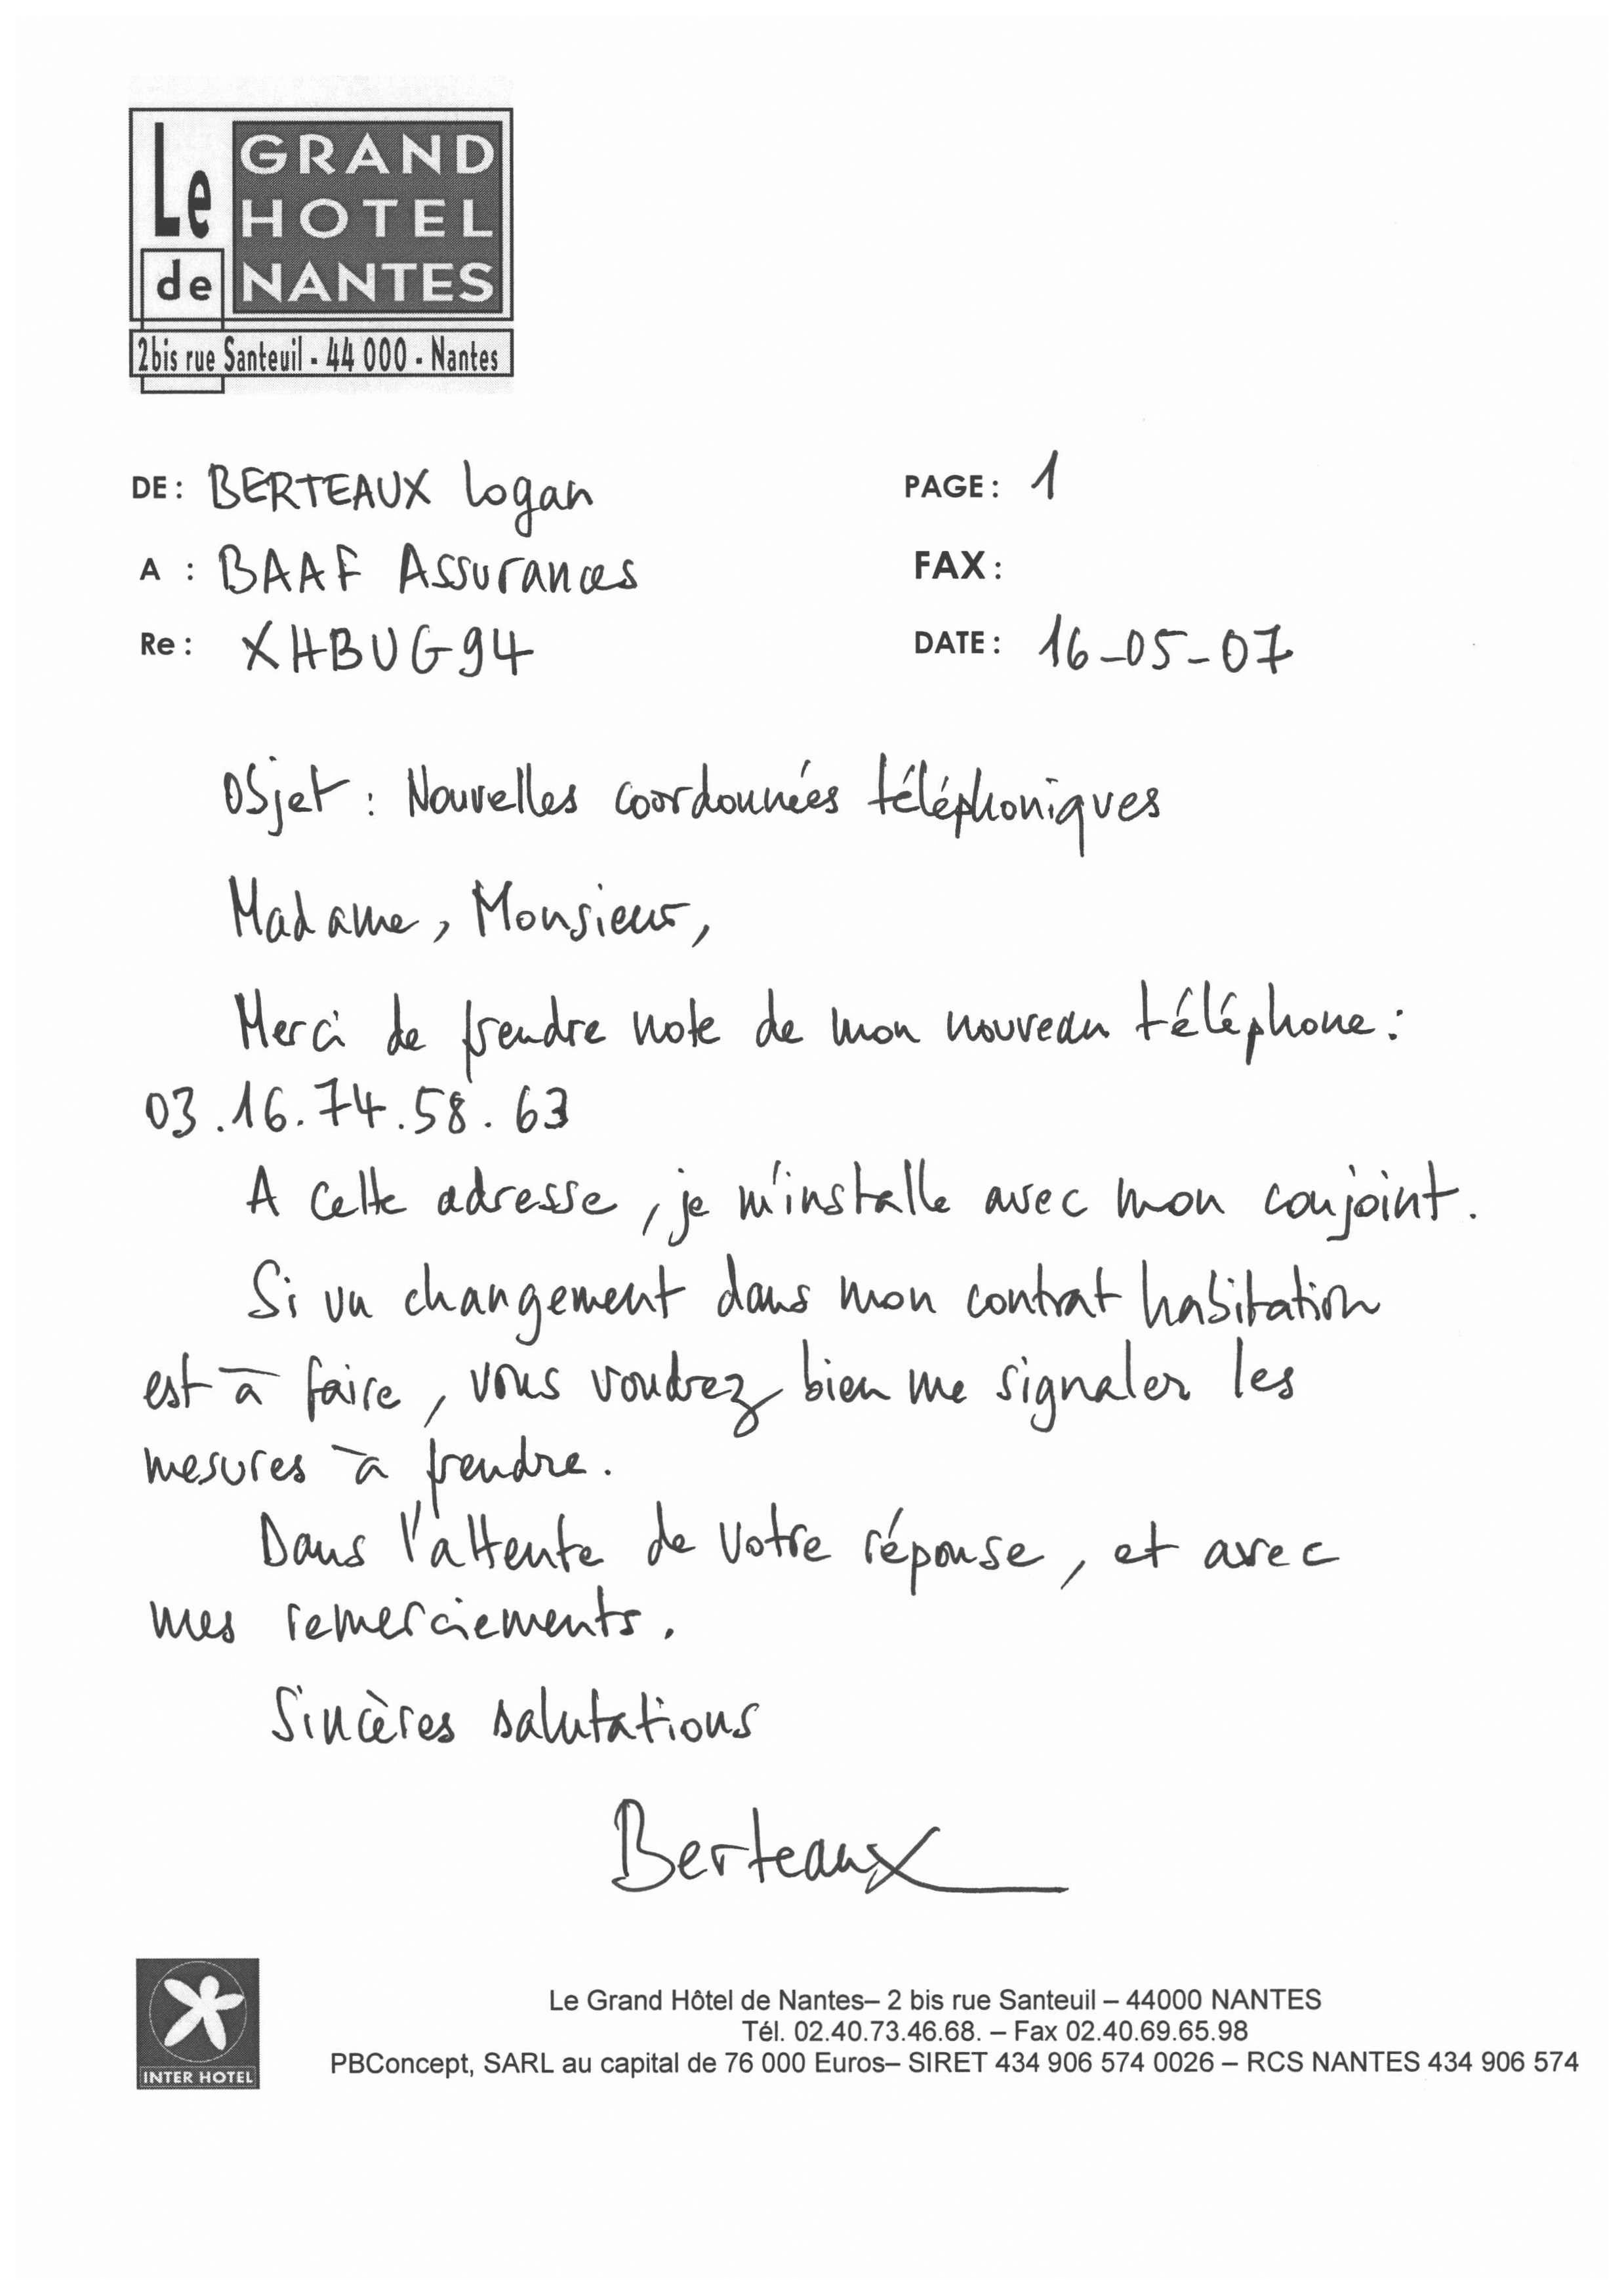 Le GRAND
HOTEL
de NANTES
2bis rue Santeuil - 44 000 - Nantes
DE : BERTEAUX Logan
PAGE : 1
A : BAAF Assurances
FAX :
Re : XHBUG94
DATE : 16-05-07
Objet : Nouvelles coordonnées téléphoniques
Madame, Monsieur,
Merci de prendre note de mon nouveau téléphone :
03.16.74.58.63
A cette adresse, je m'installe avec mon conjoint.
Si un changement dans mon contrat habitation
est à faire, vous voudrez bien me signaler les
mesures à prendre.
Dans l'attente de votre réponse, et avec
mes remerciements.
Sincères salutations
Berteaux
INTER HOTEL
Le Grand Hôtel de Nantes– 2 bis rue Santeuil – 44000 NANTES
Tél. 02.40.73.46.68. – Fax 02.40.69.65.98
PBConcept, SARL au capital de 76 000 Euros– SIRET 434 906 574 0026 – RCS NANTES 434 906 574